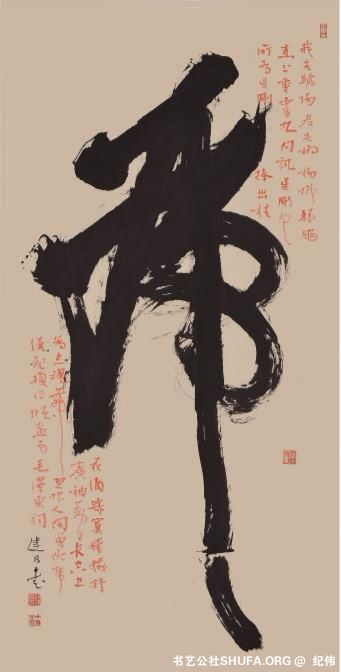 虎
我失骄杨君失柳杨柳轻飏
直上重霄九问讯吴刚何
所有吴刚捧出桂
花酒寂寞嫦娥舒
广袖万里长空且
为忠魂舞忽报人间曾伏虎
泪飞顿作倾盆雨毛泽东词
书艺公社SHUFA.ORG @ 纪伟